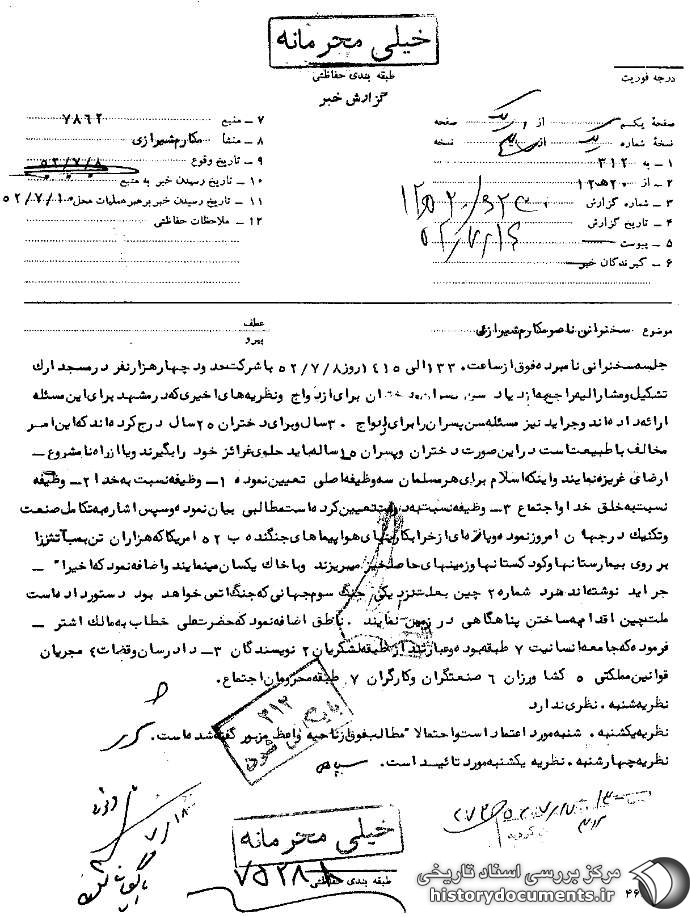 خیلی محرمانه
طبقه بندی حفاظتی
گزارش خبر
درجه فوریت
صفحهٔ یکم از یک صفحه
نسخهٔ شماره از نسخه
۱ ـ به ۳۱۲
۲ ـ از ۲۰ هـ ۱۲
۳ ـ شماره گزارش
۴ ـ تاریخ گزارش
۵ ـ پیوست
۶ ـ گیرندگان خبر
۷ ـ منبع ۷۸۶۲
۸ ـ منشأ مکارم شیرازی
۹ ـ تاریخ وقوع ۵۲/۷/۸
۱۰ ـ تاریخ رسیدن خبر به منبع
۱۱ ـ تاریخ رسیدن خبر برهبر عملیات محل ۵۲/۷/۱۰
۱۲ ـ ملاحظات حفاظتی
موضوع سخنرانی ناصر مکارم شیرازی
عطف
پیرو
جلسه سخنرانی نامبرده فوق از ساعت ۱۳۳۰ الی ۱۴۱۵ روز ۵۲/۷/۸ با شرکت حدود چهار هزار نفر در مسجد ارک
تشکیل و مشارالیه راجع به ازدیاد سن پسران و دختران برای ازدواج و نظریه های اخیری که در مشهد برای این مسئله
ارائه داده اند و جراید نیز مسئله سن پسران را برای ازدواج ۳۰ سال و برای دختران ۲۵ سال درج کرده اند که این امر
مخالف با طبیعت است در این صورت دختران و پسران ۱۵ ساله باید جلوی غرائز خود را بگیرند و یا از راه نامشروع ـ
ارضای غریزه نمایند و اینکه اسلام برای هر مسلمان سه وظیفه اصلی تعیین نموده ۱ ـ وظیفه نسبت به خدا ۲ ـ وظیفه
نسبت به خلق خدا و اجتماع ۳ ـ وظیفه نسبت به تعیین کرده است مطالبی بیان نموده و سپس اشاره به تکامل صنعت
و تکنیک در جهان امروز نموده و پاره ای از خرابکاریهای هواپیماهای جنگنده ب ۵۲ امریکا که هزاران تن بمب آتش زا
بر روی بیمارستانها و کودکستانها و زمینهای حاصلخیز میریزند و با خاک یکسان مینمایند و اضافه نمود که اخیراً ـ
جراید نوشته اند مرد شماره ۲ چین بعلت نزدیکی جنگ سوم جهانی که جنگ اتمی خواهد بود دستور داده است
ملت چین اقدام به ساختن پناهگاهی در زمین نمایند . ناطق اضافه نمود که حضرت علی خطاب به مالک اشتر ـ
فرموده که جامعه انسانیت ۷ طبقه بوده و عبارتند از طبقه لشگریان ۲ نویسندگان ۳ ـ دادرسان و قضات ۴ مجریان
قوانین مملکتی ۵ کشاورزان ۶ صنعتگران و کارگران ۷ طبقه محرومان اجتماع .
نظریه شنبه . نظری ندارد
نظریه یکشنبه . شنبه مورد اعتماد است و احتمالاً مطالب فوق از ناحیه واعظ مزبور گفته شده است .
نظریه چهارشنبه . نظریه یکشنبه مورد تائید است .
۳۱۲
خیلی محرمانه
طبقه بندی حفاظتی
۷۵۲۸۸
۴۶
مرکز بررسی اسناد تاریخی
historydocuments.ir